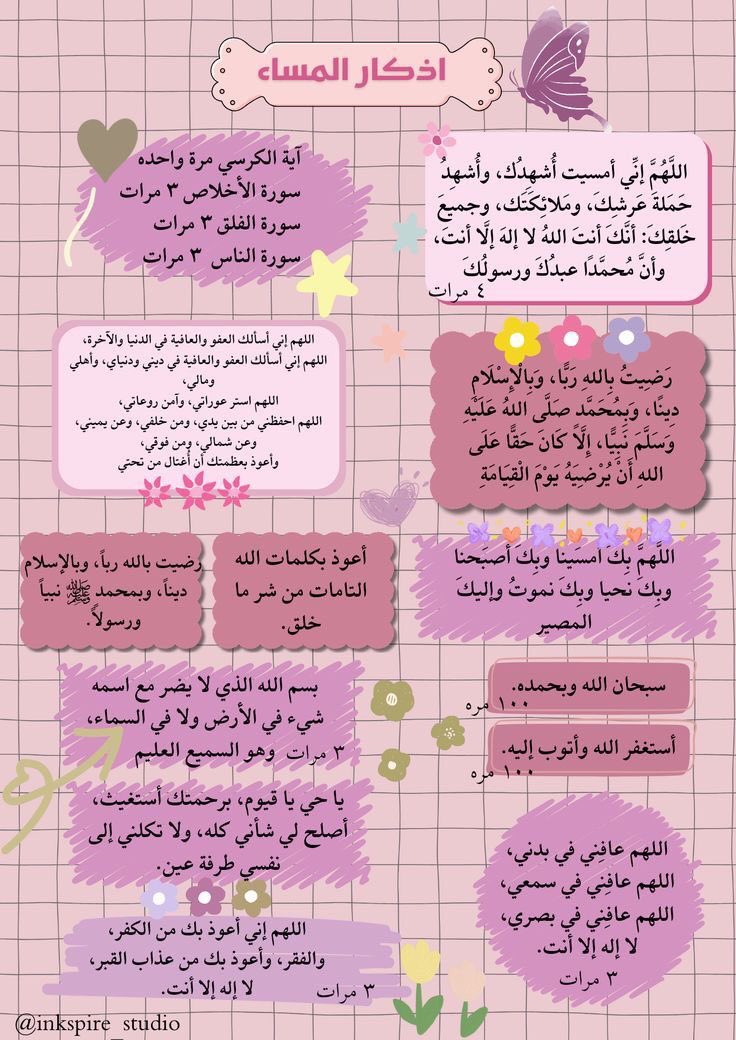 اذكار المساء
اللَّهُمَّ إنِّي أمسيت أُشهِدُك، وأُشهِدُ
حَمَلةَ عَرشِكَ، ومَلائِكَتَك، وجميعَ
خَلقِكَ: أنَّكَ أنتَ اللهُ لا إلهَ إلَّا أنتَ،
وأنَّ مُحمَّدًا عبدُكَ ورسولُكَ
٤ مرات
آية الكرسي مرة واحده
سورة الأخلاص ٣ مرات
سورة الفلق ٣ مرات
سورة الناس ٣ مرات
رَضِيتُ بِاللهِ رَبًّا، وَبِالْإِسْلَامِ
دِينًا، وَبِمُحَمَّد صَلَّى اللهُ عَلَيْهِ
وَسَلَّمَ نَبِيًّا، إِلَّا كَانَ حَقًّا عَلَى
اللهِ أَنْ يُرْضِيَهُ يَوْمَ الْقِيَامَةِ
اللهم إني أسألك العفو والعافية في الدنيا والآخرة،
اللهم إني أسألك العفو والعافية في ديني ودنياي، وأهلي
ومالي،
اللهم استر عوراتي، وآمن روعاتي،
اللهم احفظني من بين يدي، ومن خلفي، وعن يميني،
وعن شمالي، ومن فوقي،
وأعوذ بعظمتك أن أُغتال من تحتي
اللَّهمَّ بِكَ أمسَينا وبِكَ أصبَحنا
وبِكَ نحيا وبِكَ نموتُ وإليكَ
المصير
أعوذ بكلمات الله
التامات من شر ما
خلق.
رضيت بالله رباً، وبالإسلام
ديناً، وبمحمد ﷺ نبياً
ورسولاً.
سبحان الله وبحمده.
١٠٠ مره
أستغفر الله وأتوب إليه.
١٠٠ مره
بسم الله الذي لا يضر مع اسمه
شيء في الأرض ولا في السماء،
وهو السميع العليم ٣ مرات
يا حي يا قيوم، برحمتك أستغيث،
أصلح لي شأني كله، ولا تكلني إلى
نفسي طرفة عين.
اللهم عافِني في بدني،
اللهم عافِني في سمعي،
اللهم عافِني في بصري،
لا إله إلا أنت.
٣ مرات
اللهم إني أعوذ بك من الكفر،
والفقر، وأعوذ بك من عذاب القبر،
لا إله إلا أنت. ٣ مرات
@inkspire_studio